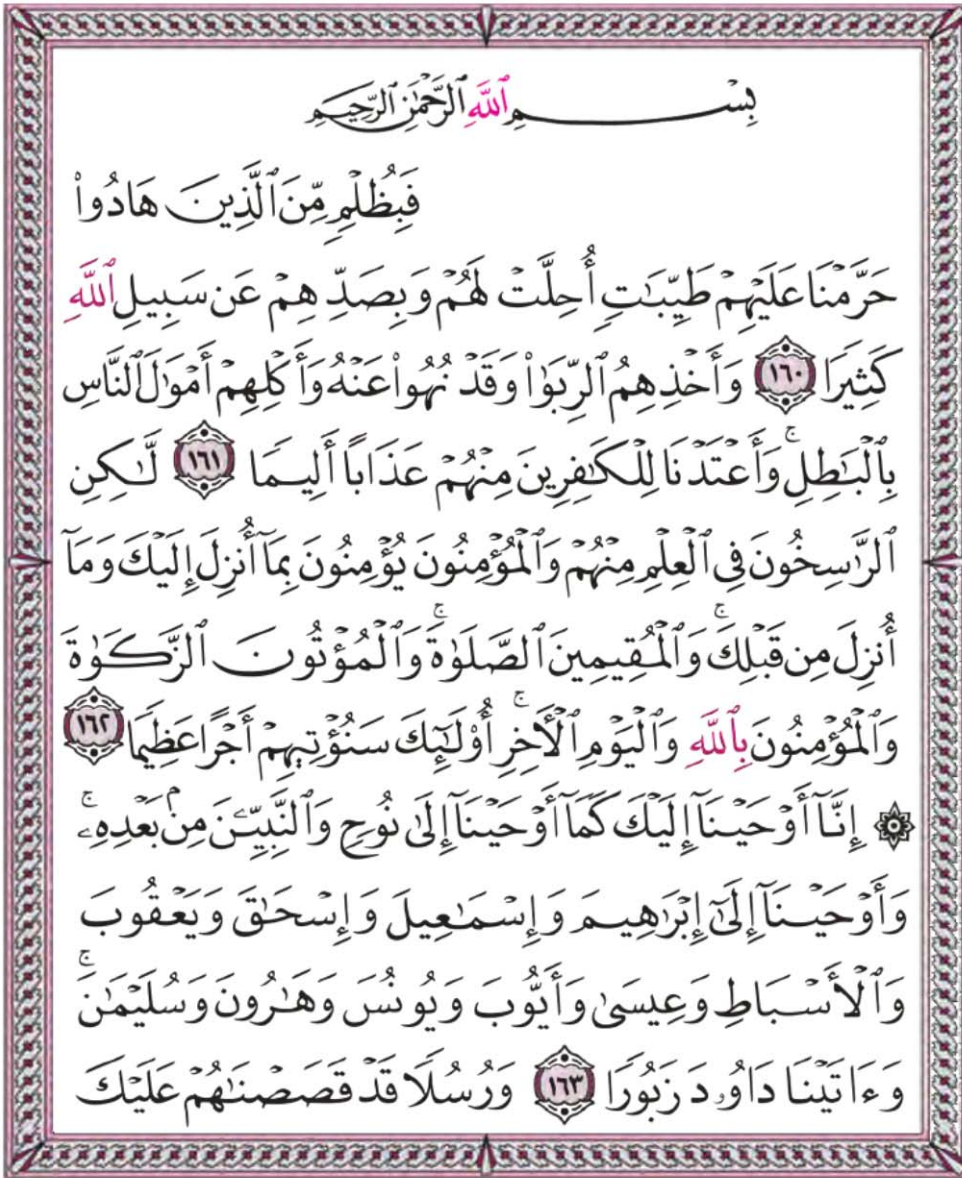 بِسْمِ ٱللَّهِ ٱلرَّحْمَٰنِ ٱلرَّحِيمِ
فَبِظُلْمٍ مِّنَ ٱلَّذِينَ هَادُوا۟
حَرَّمْنَا عَلَيْهِمْ طَيِّبَـٰتٍ أُحِلَّتْ لَهُمْ وَبِصَدِّهِمْ عَن سَبِيلِ ٱللَّهِ
كَثِيرًا ١٦٠ وَأَخْذِهِمُ ٱلرِّبَوٰا۟ وَقَدْ نُهُوا۟ عَنْهُ وَأَكْلِهِمْ أَمْوَٰلَ ٱلنَّاسِ
بِٱلْبَـٰطِلِ ۚ وَأَعْتَدْنَا لِلْكَـٰفِرِينَ مِنْهُمْ عَذَابًا أَلِيمًا ١٦١ لَّـٰكِنِ
ٱلرَّٰسِخُونَ فِى ٱلْعِلْمِ مِنْهُمْ وَٱلْمُؤْمِنُونَ يُؤْمِنُونَ بِمَآ أُنزِلَ إِلَيْكَ وَمَآ
أُنزِلَ مِن قَبْلِكَ ۚ وَٱلْمُقِيمِينَ ٱلصَّلَوٰةَ ۚ وَٱلْمُؤْتُونَ ٱلزَّكَوٰةَ
وَٱلْمُؤْمِنُونَ بِٱللَّهِ وَٱلْيَوْمِ ٱلْـَٔاخِرِ ۚ أُو۟لَـٰٓئِكَ سَنُؤْتِيهِمْ أَجْرًا عَظِيمًا ١٦٢
۞ إِنَّآ أَوْحَيْنَآ إِلَيْكَ كَمَآ أَوْحَيْنَآ إِلَىٰ نُوحٍ وَٱلنَّبِيِّـۧنَ مِنۢ بَعْدِهِۦ ۚ
وَأَوْحَيْنَآ إِلَىٰٓ إِبْرَٰهِيمَ وَإِسْمَـٰعِيلَ وَإِسْحَـٰقَ وَيَعْقُوبَ
وَٱلْأَسْبَاطِ وَعِيسَىٰ وَأَيُّوبَ وَيُونُسَ وَهَـٰرُونَ وَسُلَيْمَـٰنَ ۚ
وَءَاتَيْنَا دَاوُۥدَ زَبُورًا ١٦٣ وَرُسُلًا قَدْ قَصَصْنَـٰهُمْ عَلَيْكَ